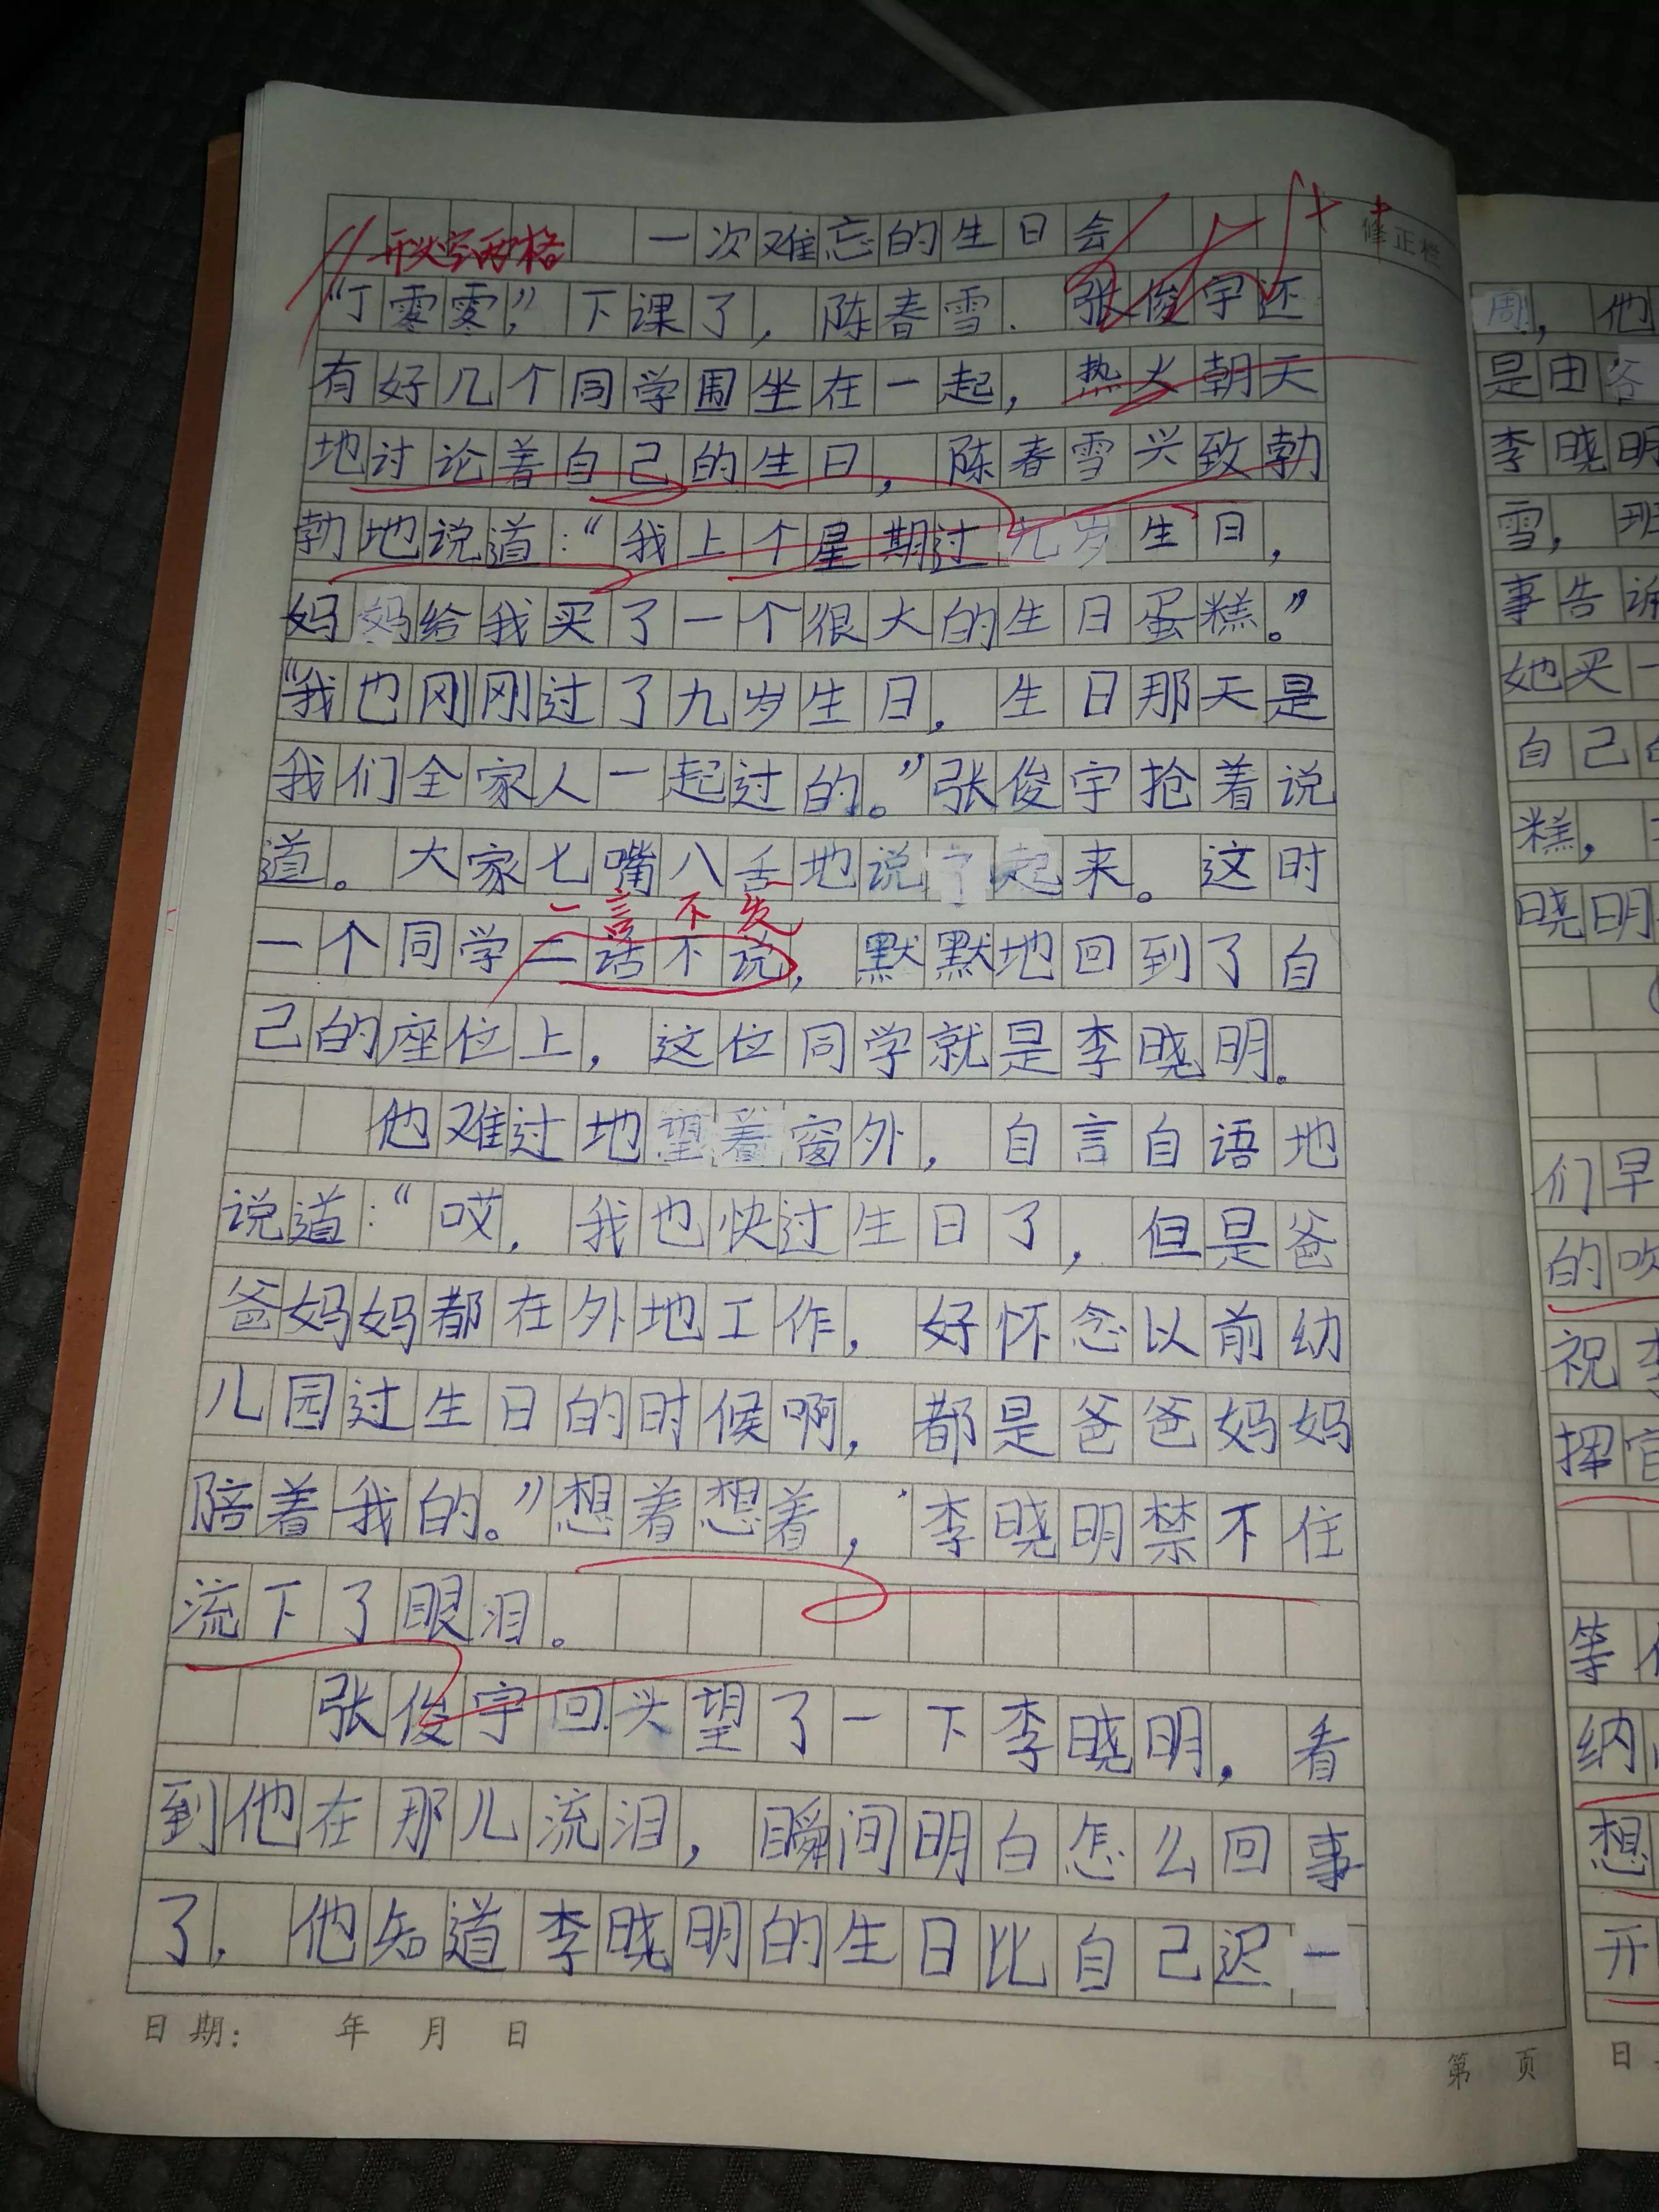 一次难忘的生日会
修正栏
开头空两格
“丁零零，”下课了，陈春雪、张俊宇还
有好几个同学围坐在一起，热火朝天
地讨论着自己的生日，陈春雪兴致勃
勃地说道：“我上个星期过九岁生日，
妈妈给我买了一个很大的生日蛋糕。”
“我也刚刚过了九岁生日，生日那天是
我们全家人一起过的。”张俊宇抢着说
道。大家七嘴八舌地说了起来。这时
一言不发
一个同学二话不说，默默地回到了自
己的座位上，这位同学就是李晓明。
他难过地望着窗外，自言自语地
说道：“哎，我也快过生日了，但是爸
爸妈妈都在外地工作，好怀念以前幼
儿园过生日的时候啊，都是爸爸妈妈
陪着我的。”想着想着，李晓明禁不住
流下了眼泪。
张俊宇回头望了一下李晓明，看
到他在那儿流泪，瞬间明白怎么回事
了，他知道李晓明的生日比自己迟一
日期： 年 月 日
第 页
周，他
是由爸
李晓明
雪，班
事告诉
她买一
自己的
糕，
晓明
们早
的吹
祝李
挥官
等
纳
想
开
日